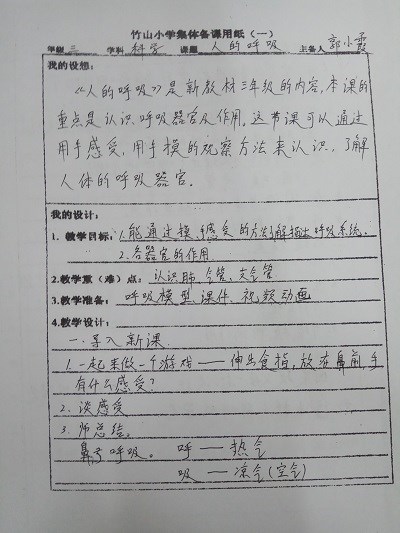 竹山小学集体备课用纸（一）
年级 三 学科 科学 课题 人的呼吸 主备人 郭小霞
我的设想：
《人的呼吸》是新教材三年级的内容,本课的
重点是认识呼吸器官及作用。这节课可以通过
用手感受,用手摸的观察方法来认识,了解
人体的呼吸器官。
我的设计：
1. 教学目标：1.能通过摸、感受的方法了解 呼吸系统.
2.各器官的作用
2.教学重（难）点：认识肺、气管、支气管
3.教学准备：呼吸模型 课件、视频动画
4.教学设计：
一.导入新课.
1.一起来做一个游戏——伸出食指,放在鼻前,手
有什么感受?
2.谈感受
3.师总结.
鼻子呼吸。 呼——热气
吸——凉气(空气)